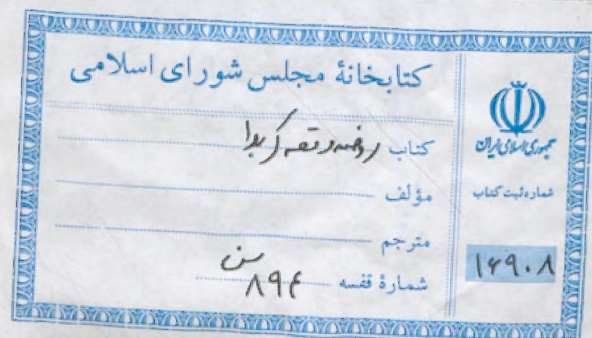 کتابخانهٔ مجلس شورای اسلامی
کتاب
مؤلف
مترجم
شمارهٔ قفسه ۸۹۴
جمهوری اسلامی ایران
شماره ثبت کتاب
۱۶۹۰۸